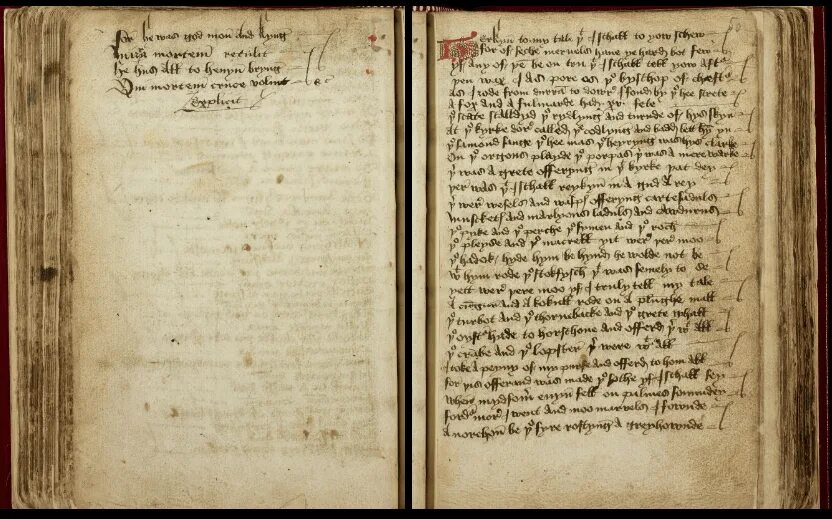 for he was god mon and kyng
mortem retulit
he hus All to hevyn bryng
Qui mortem cruce voluit
Explicit
Herkyn to my tale þt I schall to yow schew
for of seche mervels have ye hard bot few
yf any of þem be on tru þt I schall tell yow aftr
þen wax I as pore os þe byschop of chestr
As I rode from durram to dowr I fond by þe hee strete
A fox and A fulmarde had xv fete
þe scate stalldyd þe rydlyng and turnde of hys skyn
At þe kyrke dor called þe codlyng and badd lett hym yn
þe samond sange þe hee mas þe heyryng was hys clarke
On þe orgons playde þe porpas þr was a mere warke
þr was a grete offerynge in þe kyrke þat dey
þer was þt I schall reykyn in A gud A rey
þr wer wesels and waspus offeryng cartesaduls
muskettes and marlyons laduls and
þe pyke and þe perche þe fymen and þe roch
þe pleyse and þe macrell yit wer þer moo
þe hadok hyde hym be hynd he wolde not be
wt hym rode þe stokfysch þt was semely to se
yett wer þere moo yf I truly tell my tale
A cungur and A kokull rode on A plughe mall
þe turbot and þe thornebacke and þe grete whall
þe oystr hyde to horsehone and offerd þer wt All
þe crabe and þe lopster þr were wt All
I toke A peyny of my purse and offerd to hom All
for þis offerand was made þe sothe yf I schall sey
when mydsomr evyn fell on palmes sonnundey
fordr mor I went and moo marvels I fownde
A norchon be þe fyre rostyng A greyhownde